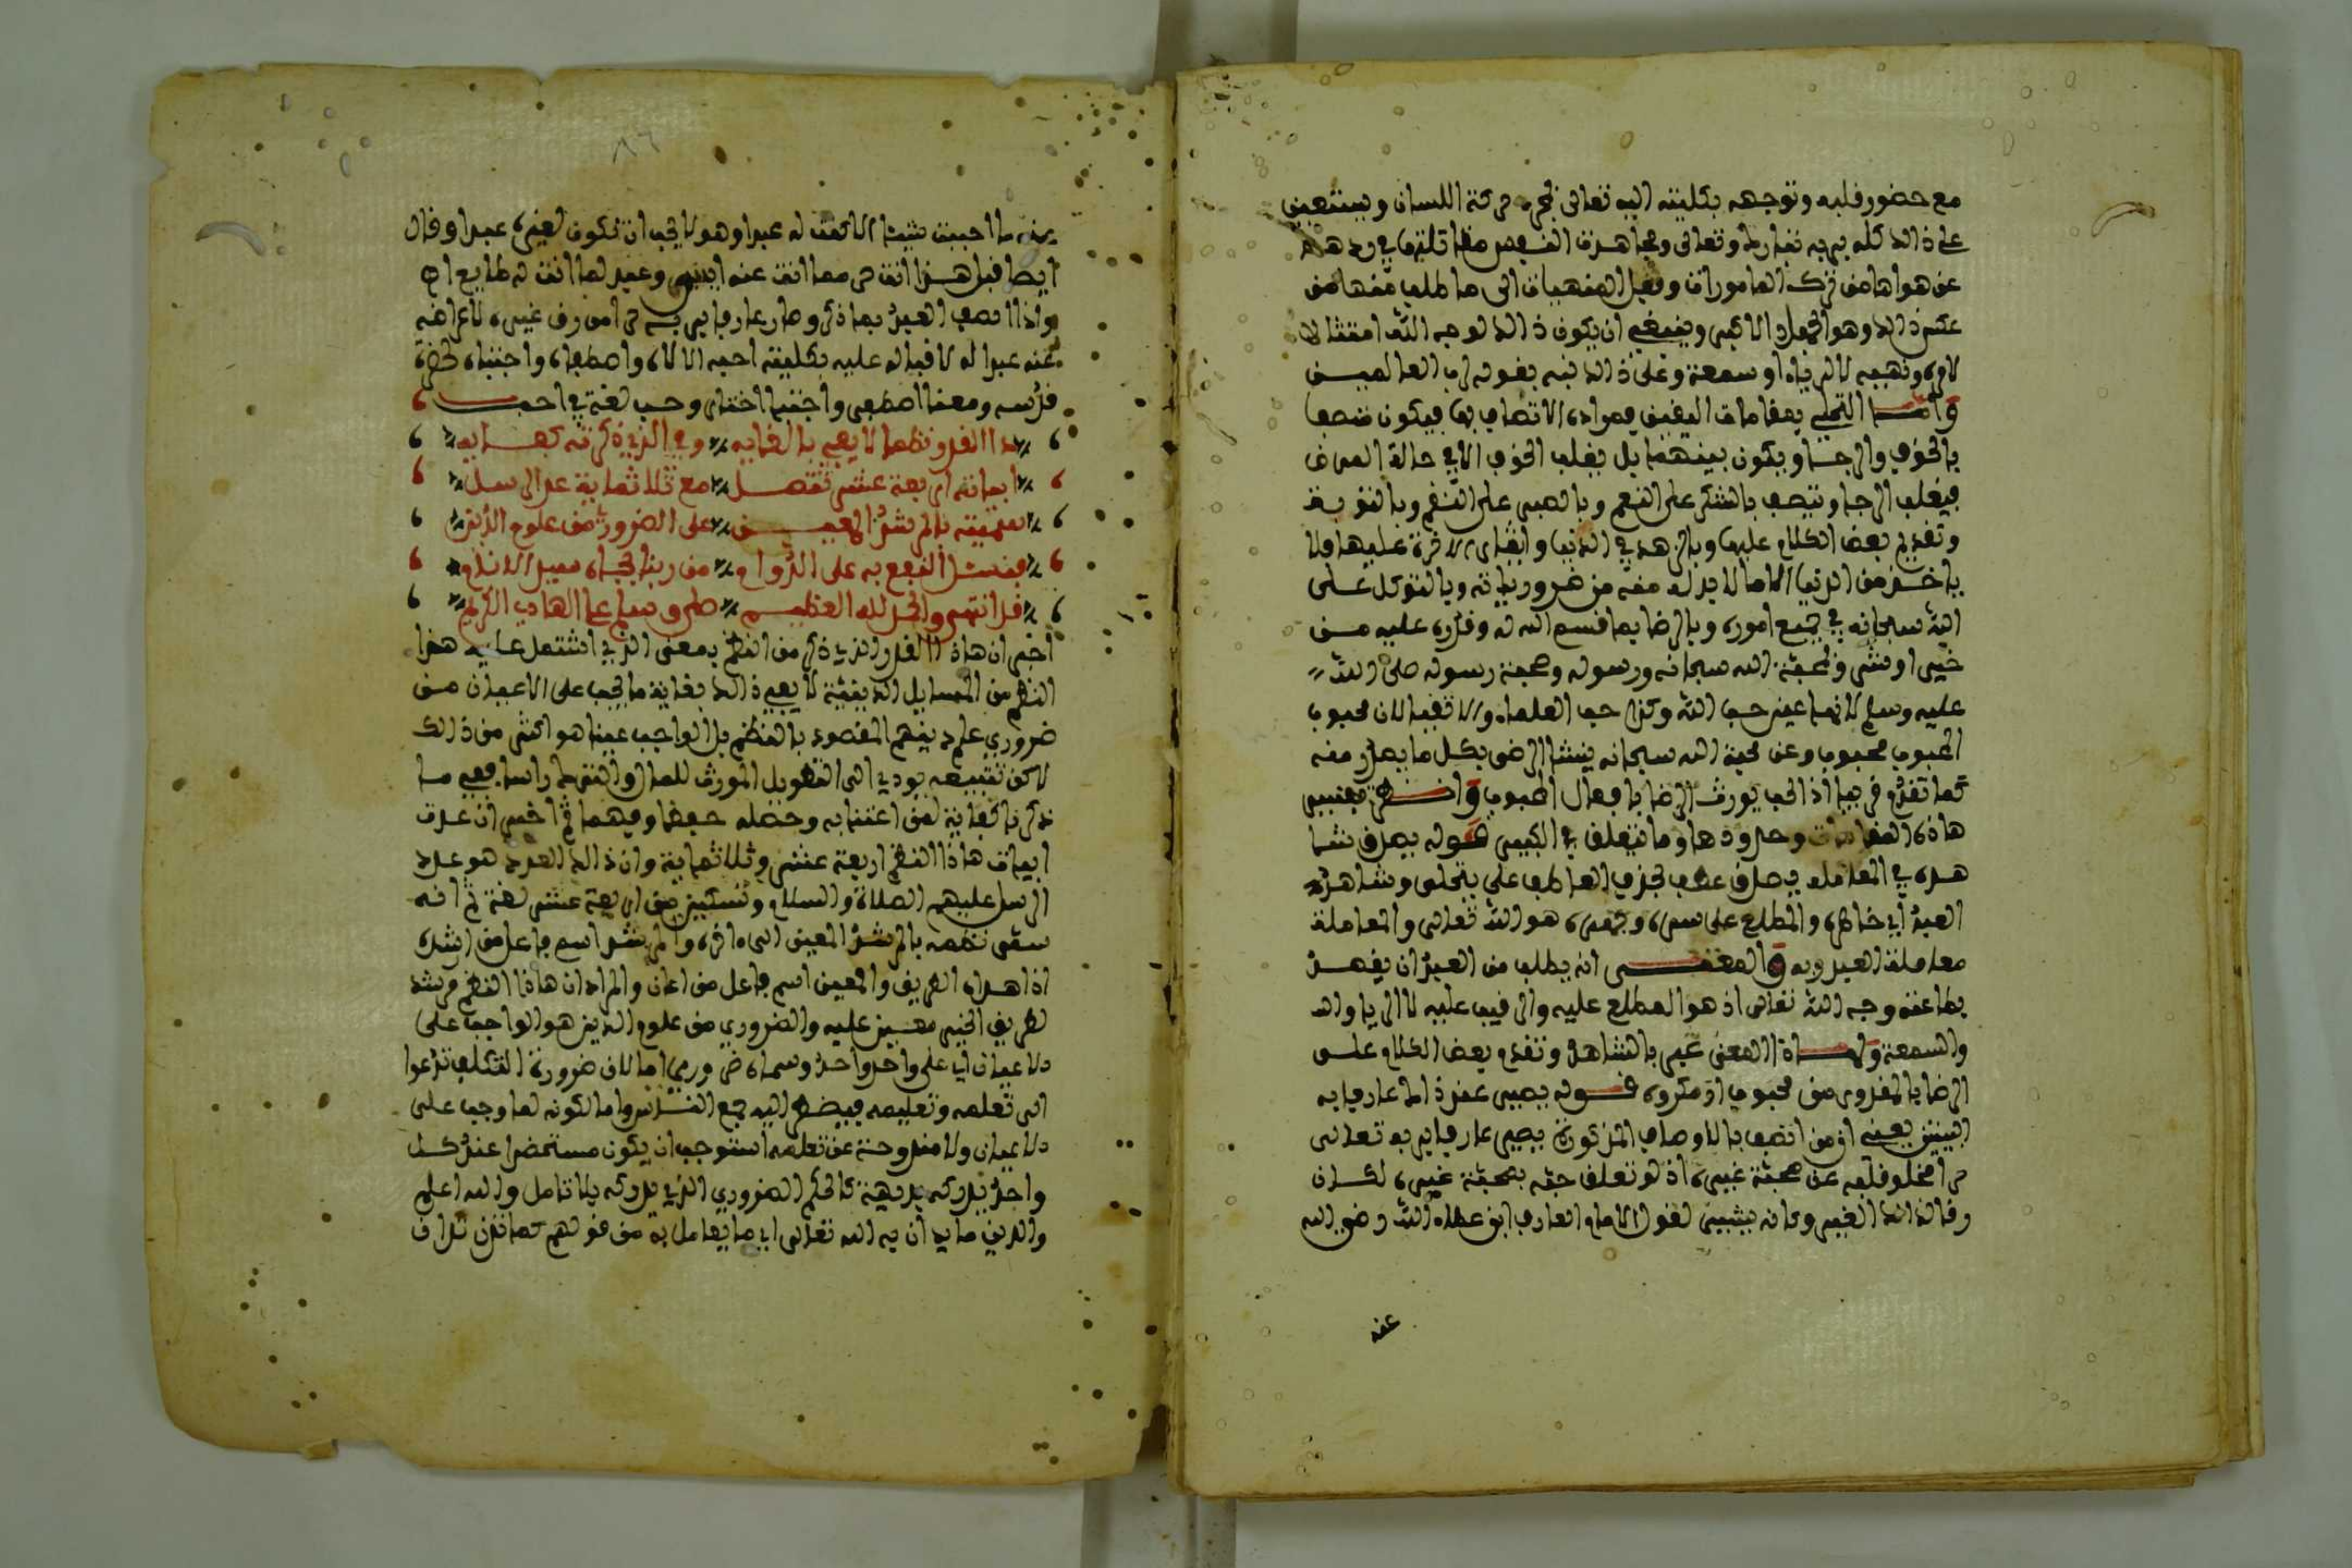 مع حضور قلبه وتوجهه بكليته اليه تعالى لا مجرد حركة اللسان ويستعين
على ذالك كله بربه تبارك وتعالى ومجاهدة النفس في ردها
عن هواها من ترك المامورات وفعل المنهيات الى ما طلب منها من
عكس ذالك وهو الجهاد الاكبر وينبغي ان يكون ذالك لوجه الله امتثالا
لامره ونهيه لا لرياء او سمعة وعلى ذالك نبه بقوله رب العالمين
واما التحلي بمقامات اليقين فمراده الاتصاف بها فيكون متصفا
بالخوف والرجا ويكون بينهما بل يغلب الخوف الا في حالة المرض
فيغلب الرجا ويتصف بالشكر على النعم وبالصبر على النقم وبالتوبة
وتقدم بعض الكلام عليها وبالزهد في الدنيا وايثار الاخرة عليها فلا
ياخذ من الدنيا الا ما لا بد له منه من ضرورياته وبالتوكل على
الله سبحانه في جميع اموره وبالرضا بما قسم الله له وقدره عليه من
خير او شر وبمحبة الله سبحانه ورسوله ومحبة رسوله صلى الله
عليه وسلم لانها عين حب الله وكذا حب العلماء والاتقيا لان محبوب
المحبوب محبوب وعن محبة الله سبحانه ينشا الرضى بكل ما يصدر منه
كما تقدم قريبا اذ الحب يورث الرضا بافعال المحبوب وانظر تفسير
هاذه المقامات وحدودها وما يتعلق في الكبير قوله يصدق شا
هده في المعامله يصدق عطف بحذف العاطف على يتحلى وشاهد
العبد اي خاطره والمطلع على سره وجهره هو الله تعالى والمعاملة
معاملة العبد ربه والمعنى انه يطلب من العبد ان يقصد
بطاعته وجه الله تعالى اذ هو المطلع عليه والرقيب عليه لا الريا ولا
والسمعة ولهاذا المعنى عبر بالشاهد وتقدم بعض الكلام على
الرضا بالمقدور من محبوب او مكروه قوله يصير عند ذاك عارفا به
البيتين يعني ان من اتصف بالاوصاف المذكورة يصير عارفا بربه تعالى
حرا لخلو قلبه عن محبة غيره اذ لو تعلق حبه بمحبة غيره لكان
رقا لذالك الغير وكانه يشير لقول الامام العارف ابن عطاء الله رضي الله
عنه
عنه ما احببت شيئا الا كنت له عبدا وهو لا يحب ان تكون لغيره عبدا وقال
ايضا قبل هذا انت حر مما انت عنه ايس وعبد لما انت له طامع اه
واذا اتصف العبد بما ذكر وصار عارفا بربه حرا من رق غيره لاعراضه
عنه عبدا له لاقباله عليه بكليته احبه الاله واصطفاه واجتباه لحضرة
قدسه ومعنى اصطفى واجتبى اختار وحب لغة في احب
ذا القدر نظما لا يفي بالغايه وفي الذي ذكرته كفايه
ابياته اربعة عشر تصل مع ثلاثماية عد الرسل
سميته بالمرشد المعين على الضروري من علوم الدين
فنسئل النفع به على الدوام من ربنا بجاه سيد الانام
قد انتهى والحمد لله العظيم صلى وسلم على الهادي الكريم
اخبر ان هاذا القدر الذي ذكر من النظم بمعنى الذي اشتمل عليه هذا
النظم من المسايل الدينية لا يفي ذالك بغاية ما يجب على الاعيان من
ضروري علم دينهم المقصود بالنظم بل الواجب عينا هو اكثر من ذالك
لاكن تتبعه يودي الى التطويل المورث للملل والترك راسا ففي ما
ذكرنا كفاية لمن اعتنا به وحصله حفظا وفهما ثم اخبر ان عدة
ابيات هاذا النظم اربعة عشر وثلاثماية وان ذالك العدد هو عدد
الرسل عليهم الصلاة والسلام وتسكين من اربعة عشر لغة ثم انه
سمى نظمه بالمرشد المعين الى ءاخره والمرشد اسم فاعل من ارشد
اذا هداه الطريق والمعين اسم فاعل من اعان والمراد ان هاذا النظم مرشد
لطريق الخير معين عليه والضروري من علوم الدين هو الواجب على
الاعيان اي على واحد واحد وسماه ضروري اما لان ضرورة التكليف تدعوا
الى تعلمه وتعليمه فيضطر اليه جميع الناس واما لكونه لما وجب على
الاعيان ولا مندوحة عن تعلمه استوجب ان يكون مستحضرا عند كل
واحد يدركه بديهة كالحكم الضروري الذي يدركه بلا تامل والله اعلم
والدين ما يدان به الله تعالى اي ما يعامل به من قولهم كما تدين تدان